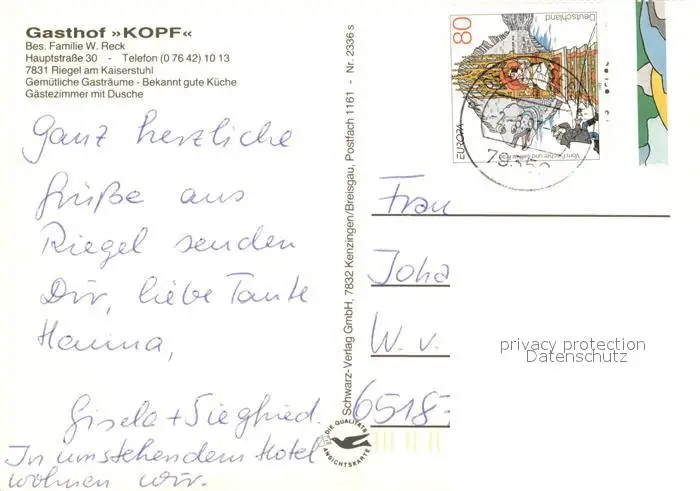 Gasthof »KOPF«
Bes. Familie W. Reck
Hauptstraße 30 - Telefon (0 76 42) 10 13
7831 Riegel am Kaiserstuhl
Gemütliche Gasträume - Bekannt gute Küche
Gästezimmer mit Dusche
Ganz herzliche
Grüße aus
Riegel senden
Dir, liebe Tante
Hanna,
Gisela + Siegfried.
In umstehendem Hotel
wohnen wir.
Schwarz-Verlag GmbH, 7832 Kenzingen/Breisgau, Postfach 1161 - Nr. 2336 s
DIE QUALITÄTS
ANSICHTSKARTE
80
Deutschland
EUROPA
Vom Fischer und seiner Frau
Frau
Joha
W. v.
6518
privacy protection
Datenschutz